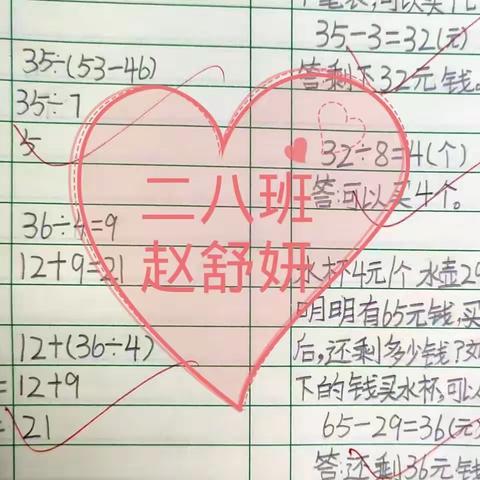 35÷(53-46)
35÷7
5
36÷4=9
12+9=21
12+(36÷4)
=12+9
=21
35-3=32(元)
答:剩下32元钱。
32÷8=4(个)
答:可以买4个。
水杯4元/个 水壶29
明明有65元钱,买
后,还剩多少钱?如
下的钱买水杯,可以
65-29=36(元)
答:还剩36元钱
二八班
赵舒妍